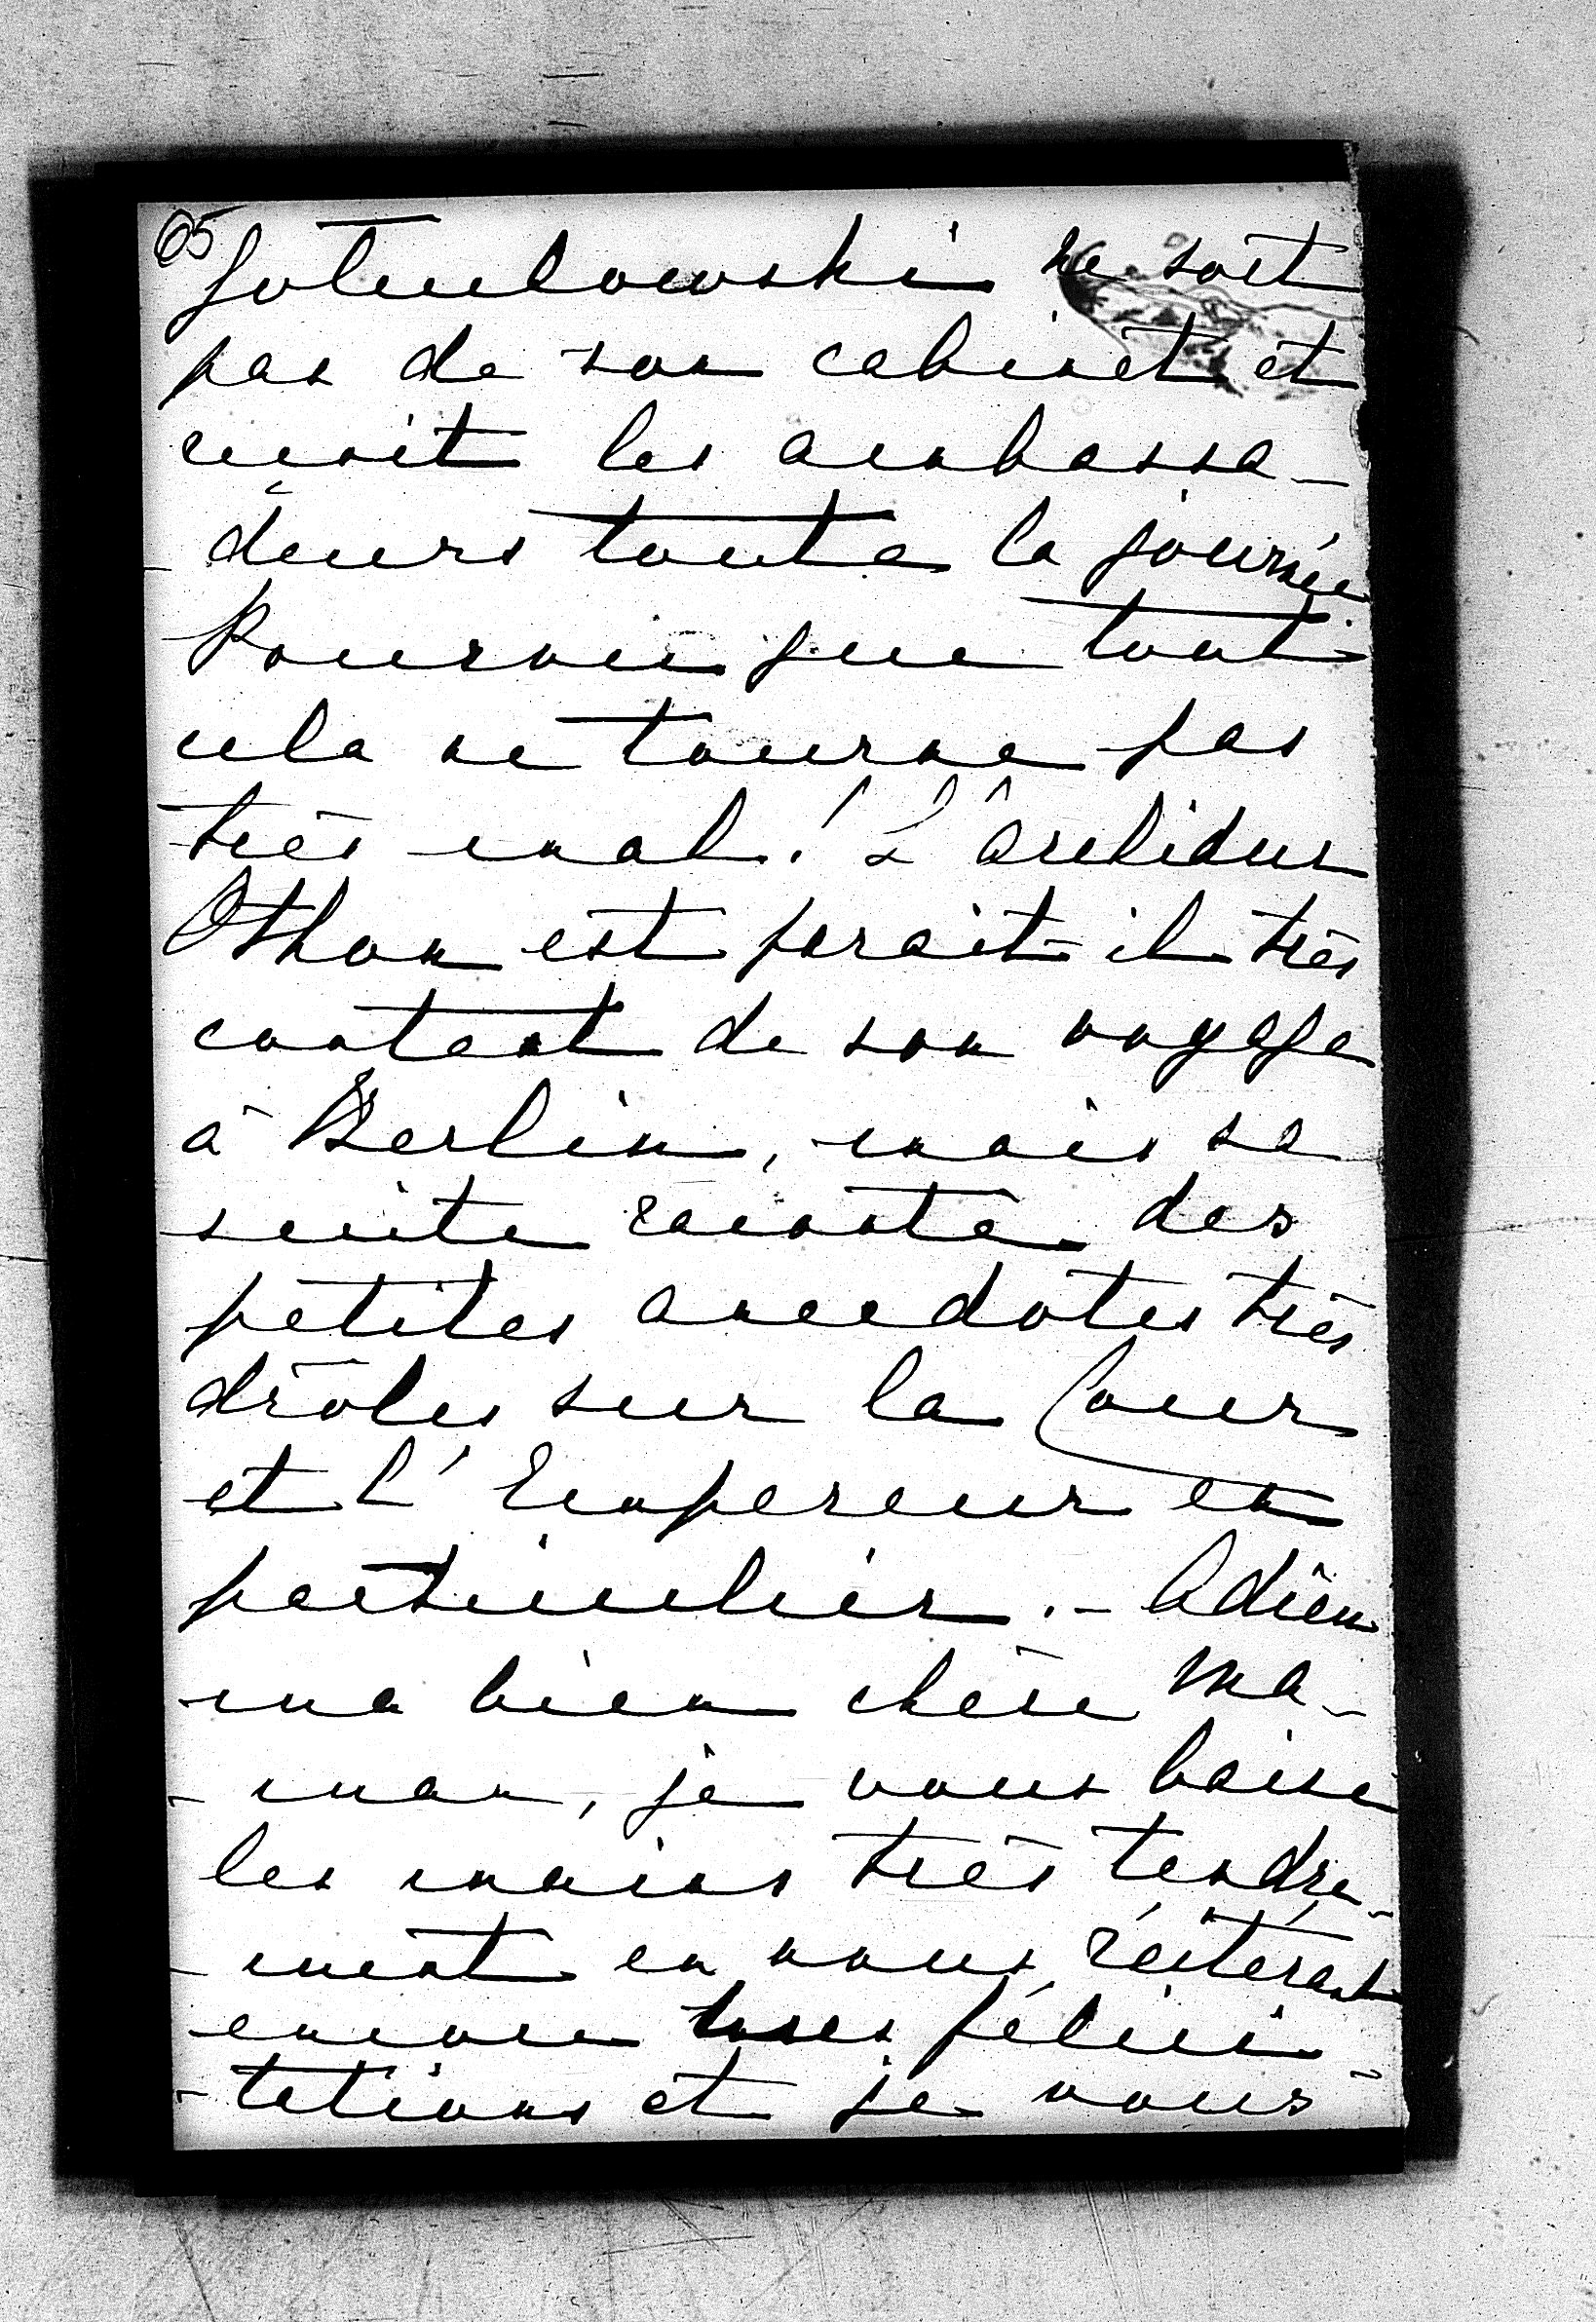 65
Goluchowski ne sort
pas de son cabinet et
reçoit les ambassa-
-deurs toute la journée
Pourvu que tout
cela ne tourne pas
très mal! L'archiduc
Othon est parait-il très
content de son voyage
à Berlin, mais sa
suite raconte des
petites anecdotes très
drôles sur la Cour
et l'Empereur en
particulier. - Adieu
ma bien chère Ma-
-man, je vous baise
les mains très tendre-
-ment en vous réitérant
encore mes félici-
-tations et je vous